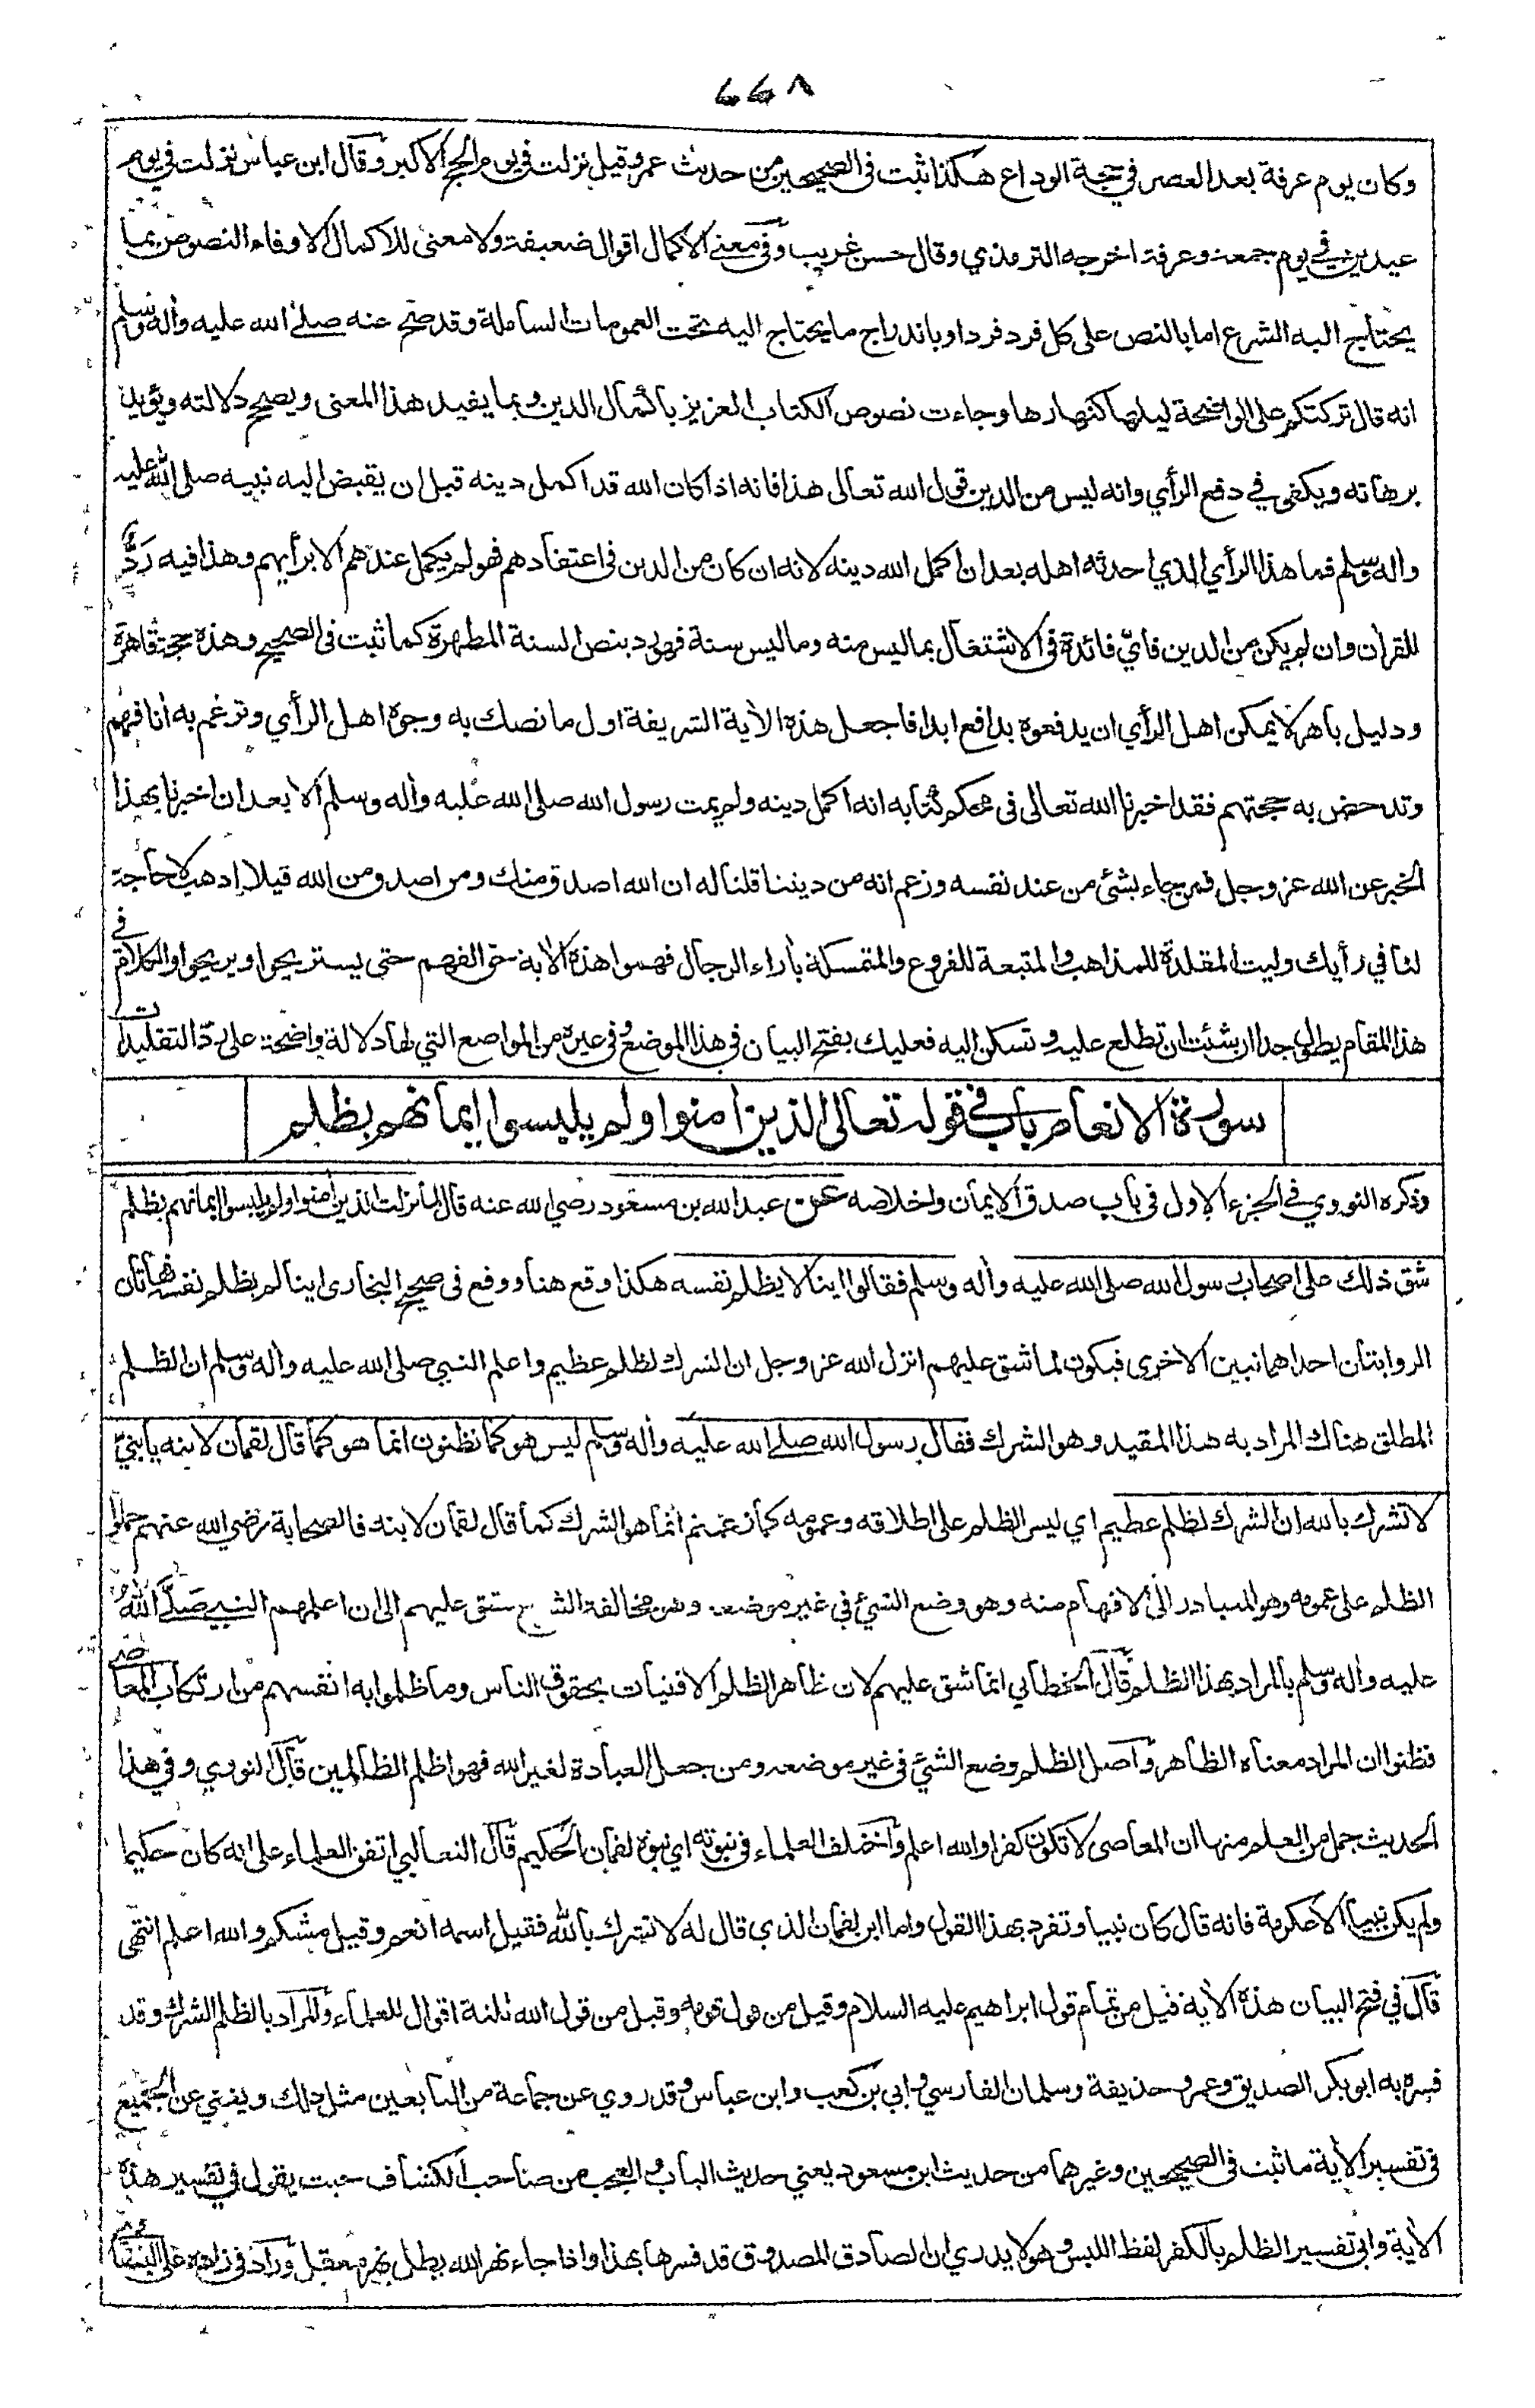 ٦٦٨
وكان يوم عرفة بعد العصر في حجة الوداع هكذا ثبت في الصحيحين من حديث عمر وقيل نزلت في يوم الحج الاكبر وقال ابن عباس نزلت في يوم
عيدين في يوم جمعة وعرفة اخرجه الترمذي وقال حسن غريب وفي معنى الاكمال اقوال ضعيفة ولا معنى للاكمال الا وفاء النصوص بما
يحتاج اليه الشرع اما بالنص على كل فرد فرد او باندراج ما يحتاج اليه تحت العمومات الشاملة وقد صح عنه صلى الله عليه وأله وسلم
انه قال تركتكم على الواضحة ليلها كنهارها وجاءت نصوص الكتاب العزيز بأكمال الدين وبما يفيد هذا المعنى ويصحح دلالته ويؤيد
برهانه ويكفي في دفع الرأي وانه ليس من الدين قول الله تعالى هذا فانه اذا كان الله قد اكمل دينه قبل ان يقبض اليه نبيه صلى الله عليه
وأله وسلم فما هذا الرأي الذي احدثه اهله بعد ان اكمل الله دينه لانه ان كان من الدين في اعتقادهم فهو لم يكمل عندهم الا برأيهم وهذا فيه ردّ
للقرأن وان لم يكن من الدين فايّ فائدة في الاشتغال بما ليس منه وما ليس سنة فهو رد بنص السنة المطهرة كما ثبت في الصحيح وهذه حجة قاهرة
ودليل باهر لا يمكن اهل الرأي ان يدفعوه بدافع ابدا فاجعل هذه الأية الشريفة اول ما تصك به وجوه اهل الرأي وترغم به أنافهم
وتدحض به حجتهم فقد اخبرنا الله تعالى في محكم كتابه انه اكمل دينه ولم يمت رسول الله صلى الله عليه وأله وسلم الا بعد ان اخبرنا بهذا
الخبر عن الله عز وجل فمن جاء بشئ من عند نفسه وزعم انه من ديننا قلنا له ان الله اصدق منك ومن اصدق من الله قيلا اذهب لا حاجة
لنا في رأيك وليت المقلدة للمذاهب والمتبعة للفروع والمتمسكة بأراء الرجال فهموا هذه الأية حق الفهم حتى يستريحوا ويريحوا والكلام في
هذا المقام يطول جدا ان شئت ان تطلع عليه وتسكن اليه فعليك بفتح البيان في هذا الموضع وفي غيره من المواضع التي لها دلالة واضحة على ردّ التقليدات
سورة الانعام باب في قوله تعالى الذين أمنوا ولم يلبسوا ايمانهم بظلم
وذكره النووي في الجزء الاول في باب صدق الايمان واخلاصه عن عبد الله بن مسعود رضي الله عنه قال لما نزلت الذين أمنوا ولم يلبسوا ايمانهم بظلم
شق ذلك على اصحاب رسول الله صلى الله عليه وأله وسلم فقالوا اينا لا يظلم نفسه هكذا وقع هنا ووقع في صحيح البخاري اينا لم يظلم نفسه فهاتان
الروايتان احداهما تبين الاخرى فيكون لما شق عليهم انزل الله عز وجل ان الشرك لظلم عظيم واعلم النبي صلى الله عليه وأله وسلم ان الظلم
المطلق هناك المراد به هذا المقيد وهو الشرك فقال رسول الله صلى الله عليه وأله وسلم ليس هو كما تظنون انما هو كما قال لقمان لابنه يا بنيّ
لا تشرك بالله ان الشرك لظلم عظيم اي ليس الظلم على اطلاقه وعمومه كما زعمتم انما هو الشرك كما قال لقمان لابنه فالصحابة رضي الله عنهم حملوا
الظلم على عمومه وهو المتبادر الى الافهام منه وهو وضع الشئ في غير موضعه وهو مخالفة الشرع شق عليهم الى ان اعلمهم النبي صلى الله
عليه وأله وسلم بالمراد بهذا الظلم قال الخطابي انما شق عليهم لان ظاهر الظلم الافتيات بحقوق الناس وما ظلموا به انفسهم من ارتكاب المعاصي
فظنوا ان المراد معناه الظاهر وأصل الظلم وضع الشئ في غير موضعه ومن جعل العبادة لغير الله فهو اظلم الظالمين قال النووي وفي هذا
الحديث جمل من العلم منها ان المعاصي لا تكون كفرا والله اعلم واختلف العلماء في نبوته اي نبوة لقمان الحكيم قال الثعالبي اتفق العلماء على انه كان حكيما
ولم يكن نبيا الا عكرمة فانه قال كان نبيا وتفرد بهذا القول واما ابن لقمان الذي قال له لا تشرك بالله فقيل اسمه انعم وقيل مشكم والله اعلم انتهى
قال في فتح البيان هذه الأية قيل من تمام قول ابراهيم عليه السلام وقيل من قول قومه وقيل من قول الله ثلثة اقوال للعلماء والمراد بالظلم الشرك وقد
فسره به ابو بكر الصديق وعمر وحذيفة وسلمان الفارسي وابي بن كعب وابن عباس وقد روي عن جماعة من التابعين مثل ذلك ويغني عن الجميع
في تفسير الأية ما ثبت في الصحيحين وغيرهما من حديث ابن مسعود يعني حديث الباب والعجب من صاحب الكشاف حيث يقول في تفسير هذه
الأية وابى تفسير الظلم بالكفر لفظ اللبس وهو لا يدري ان الصادق المصدوق قد فسرها بهذا واذا جاء نهر الله بطل نهر معقل وزاد في زاده على البيضاوي